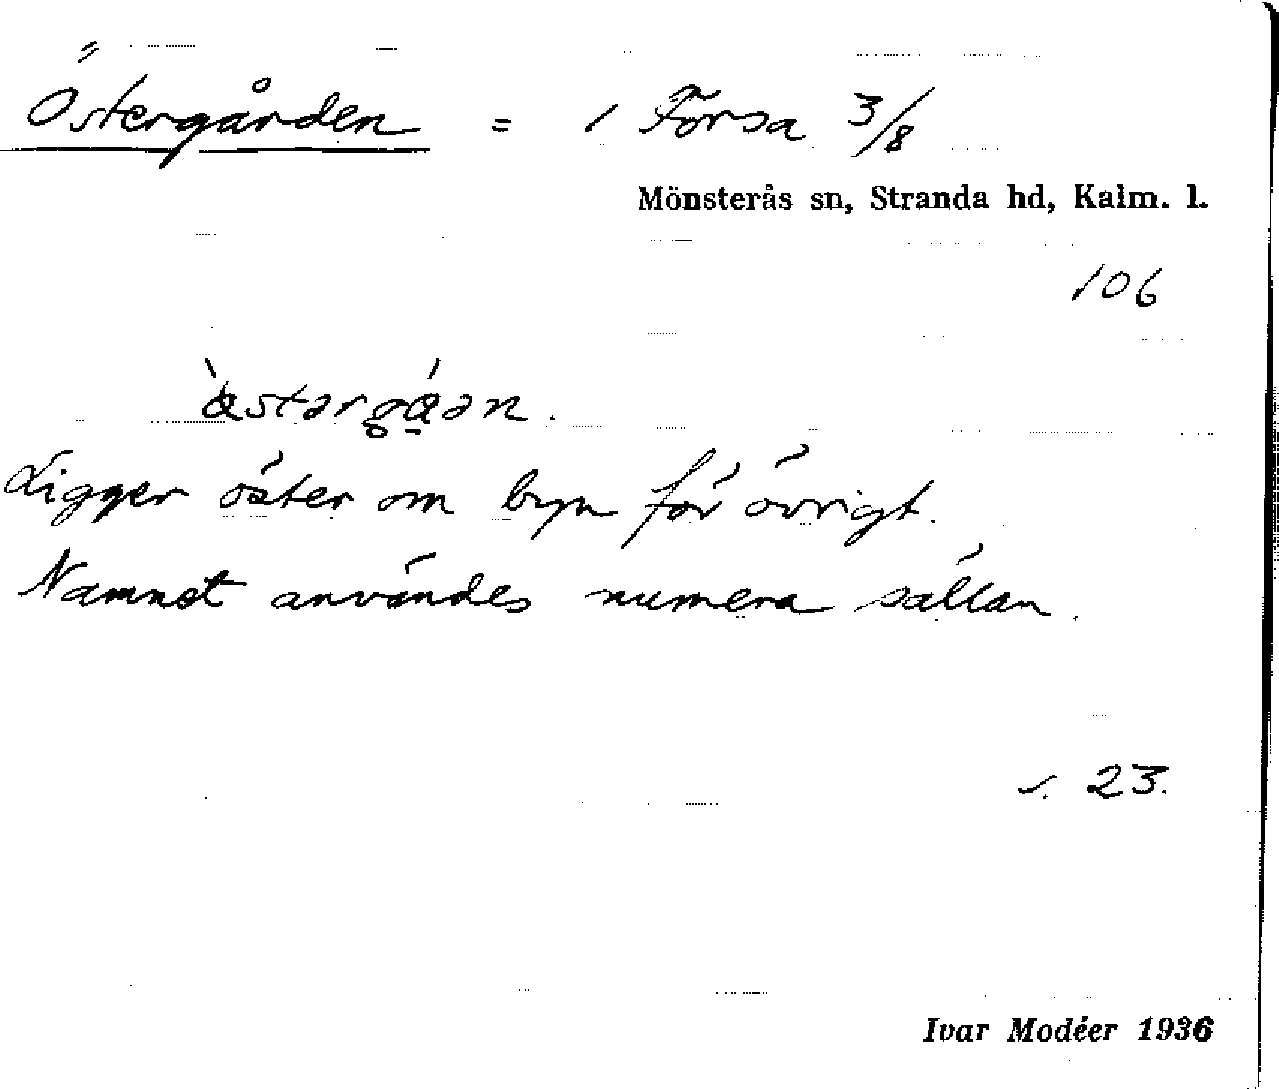 Östergården = 1 Forsa 3/8
Mönsterås sn, Stranda hd, Kalm. l.
106
Ligger öster om byn för övrigt.
Namnet användes numera sällan.
s. 23.
Ivar Modéer 1936